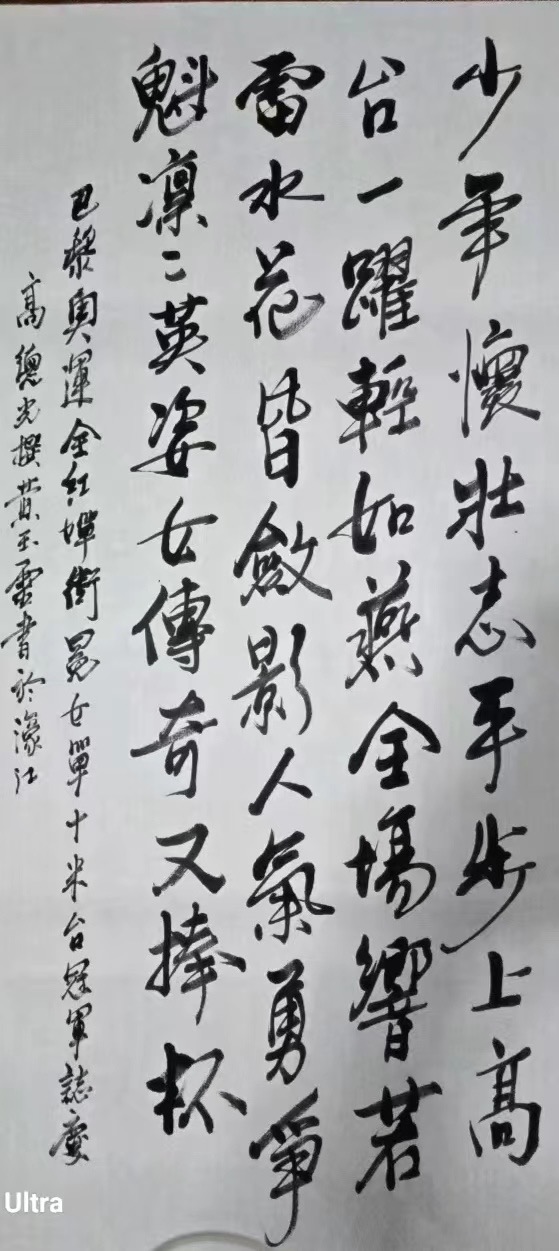 少年懷壯志平步上高
台一躍輕如燕全場響若
雷水花皆斂影人氣勇爭
魁凛二英姿女傳奇又捧杯
巴黎奧運全红嬋衛冕女單十米台冠軍誌慶
高總光撰黄玉雷書於濠江
Ultra